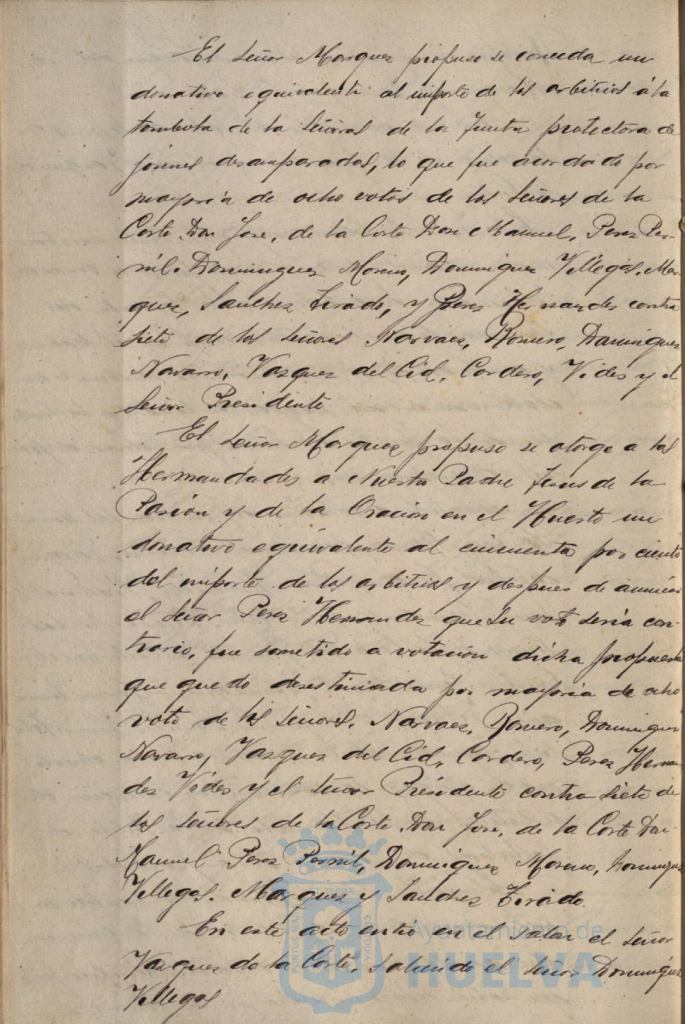 El Señor Marquez propuso se conceda un
donativo equivalente al importe de los arbitrios á la
tombola de la Señoras de la Junta protectora de
jóvenes desamparadas, lo que fue acordado por
mayoria de ocho votos de los Señores de la
Corte Don Jose, de la Corte Don Manuel, Perez Per-
nil. Dominguez Moreno, Dominguez Villegas. Mar-
quez, Sanchez Tirado, y Perez Hernandez contra
siete de los Señores Narvaez, Romero, Dominguez
Navarro, Vazquez del Cid, Cordero, Vides y el
Señor Presidente
El Señor Marquez propuso se otorge a las
Hermandades a Nuestro Padre Jesus de la
Pasión y de la Oracion en el Huerto un
donativo equivalente al cincuenta por ciento
del importe de los arbitrios y despues de anunciar
el Señor Perez Hernandez que su voto seria con-
trario, fue sometido a votación dicha propuesta
que quedo desestimada por mayoria de ocho
voto de los Señores. Narvaez, Romero, Dominguez
Navarro, Vazquez del Cid, Cordero, Perez Hernan-
dez Vides y el Señor Presidente contra siete de
los Señores de la Corte Don Jose, de la Corte Don
Manuel Perez Pernil, Dominguez Moreno, Dominguez
Villegas. Marquez y Sanchez Tirado.
En este acto entró en el Salon el Señor
Vazquez de la Corte, saliendo el Señor Dominguez
Villegas
Ayuntamiento de
HUELVA